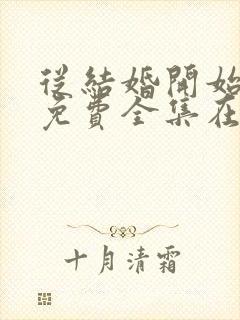 從結婚開始
免費全集在
十月清霜